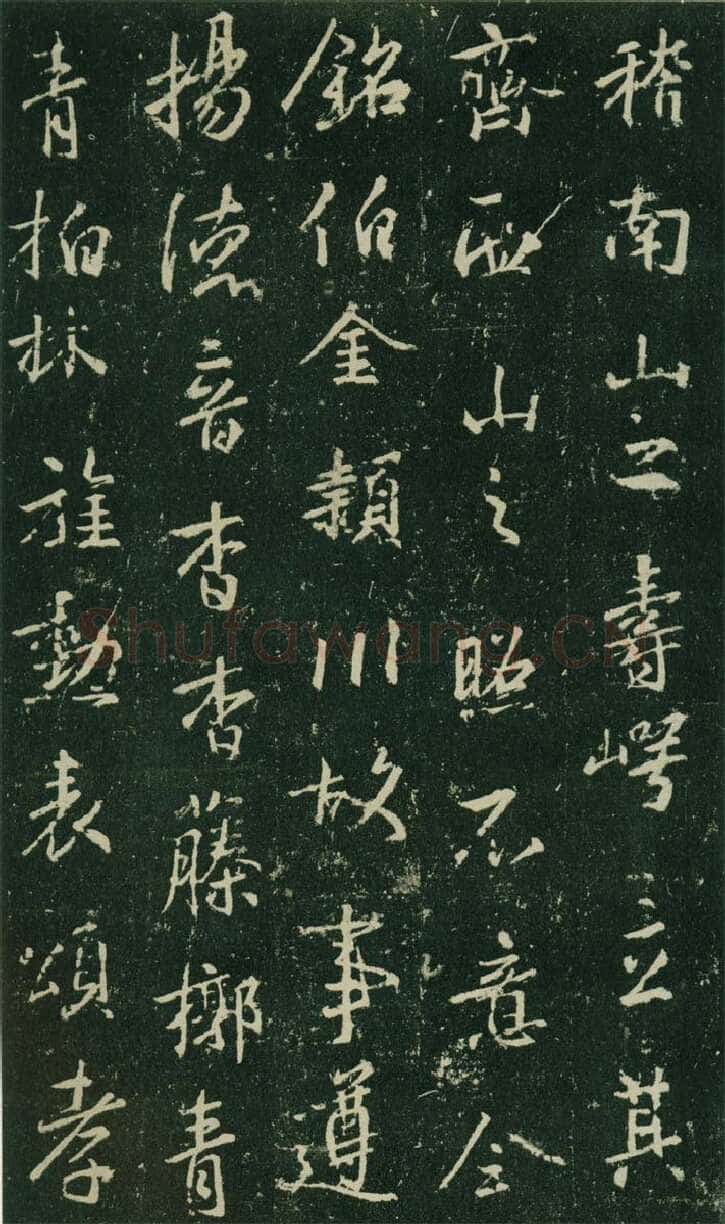 稽南山之壽崿立其
齊西山之照不意今
銘伯金頴川故事遵
揚德音杳杳藤槨青
青柏林旌勳表頌孝
Shufawang.CN